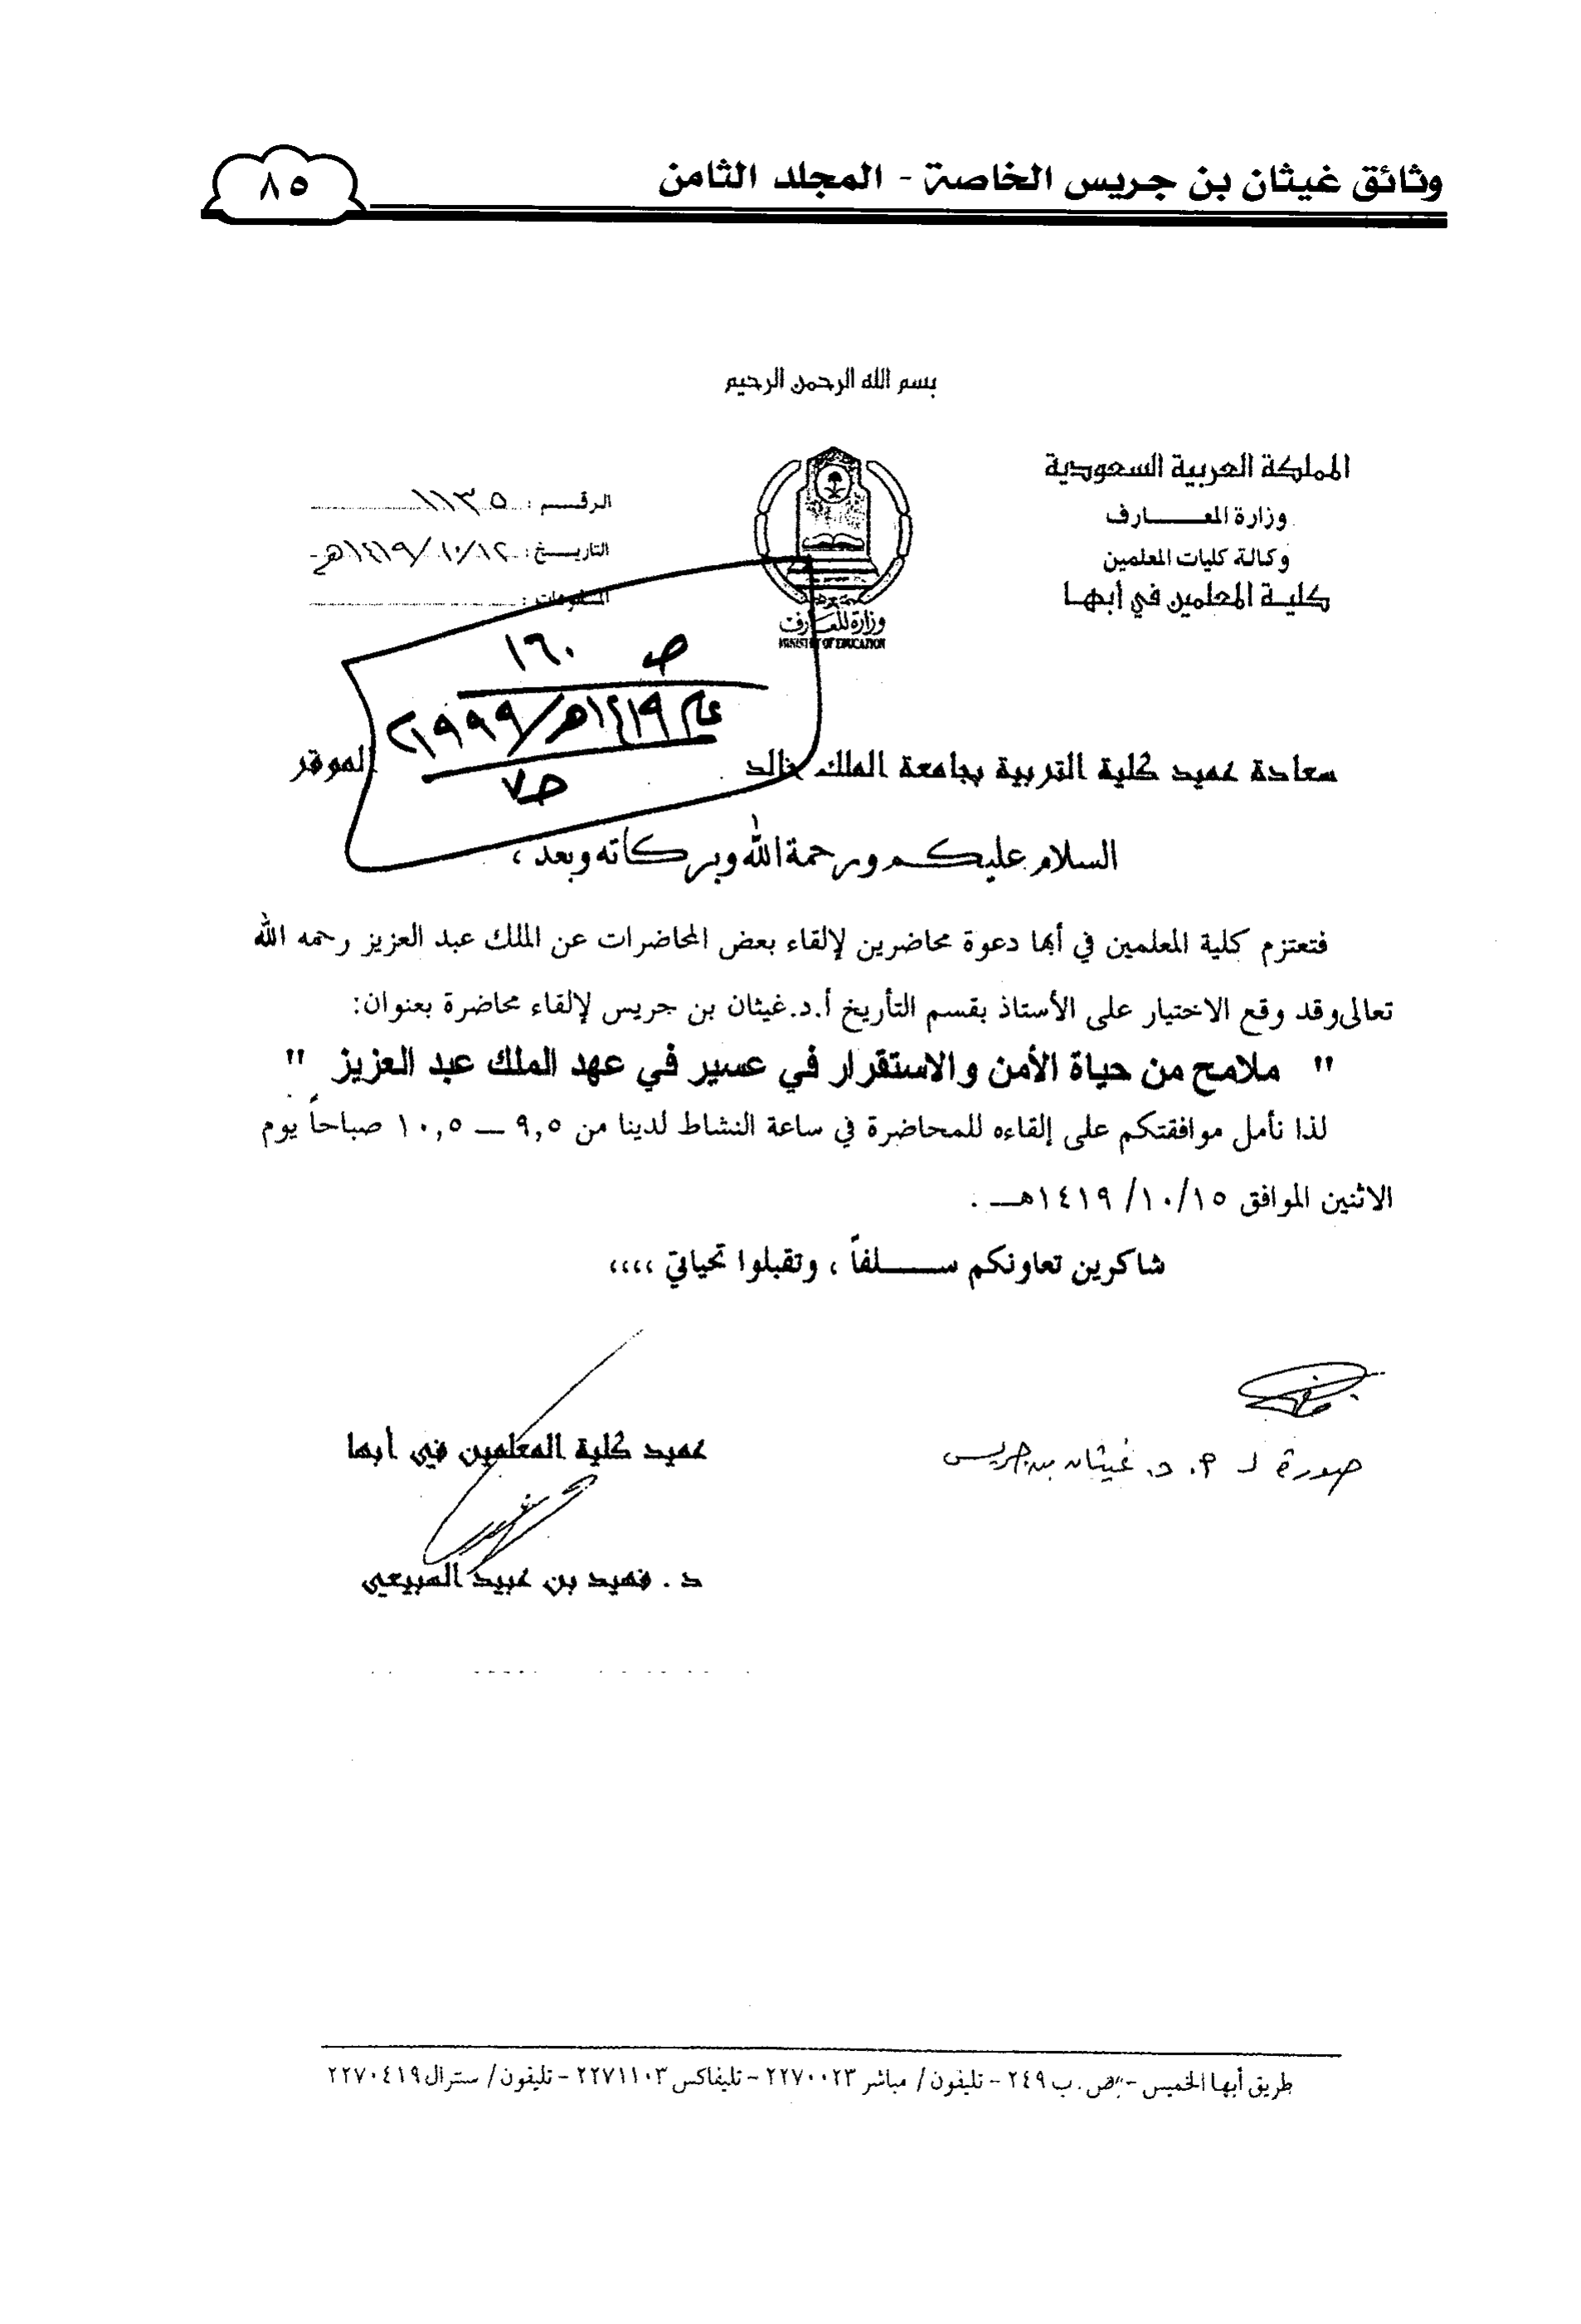 وثائق غيثان بن جريس الخاصة - المجلد الثامن
٨٥
بسم الله الرحمن الرحيم
المملكة العربية السعودية
وزارة المعـــــارف
وكالة كليات المعلمين
كليـة المعلمين في أبهـا
وزارة المعارف
MINISTRY OF EDUCATION
الرقـــم : ١١٣٥
التاريـــخ : ١٤١٩/١٠/١٢هـ
ص ١٦٠
عام ١٤١٩هـ/١٩٩٩م
ح٧
سعادة عميد كلية التربية بجامعة الملك خالد الموقر
السلام عليكم ورحمة الله وبركاته وبعد ،
فتعتزم كلية المعلمين في أبها دعوة محاضرين لإلقاء بعض المحاضرات عن الملك عبد العزيز رحمه الله
تعالى وقد وقع الاختيار على الأستاذ بقسم التأريخ أ.د.غيثان بن جريس لإلقاء محاضرة بعنوان:
" ملامح من حياة الأمن والاستقرار في عسير في عهد الملك عبد العزيز "
لذا نأمل موافقتكم على إلقاءه للمحاضرة في ساعة النشاط لدينا من ٩,٥ – ١٠,٥ صباحاً يوم
الاثنين الموافق ١٤١٩/١٠/١٥هـ .
شاكرين تعاونكم ســـلفاً ، وتقبلوا تحياتي ،،،،
عميد كلية المعلمين في أبها
صورة لـ أ. د. غيثان بن جريس
د . فهيد بن عبيد السبيعي
طريق أبها الخميس - ص.ب ٢٤٩ - تليفون / مباشر ٢٢٧٠٠٢٣ - تليفاكس ٢٢٧١١٠٣ - تليفون / سنترال ٢٢٧٠٤١٩